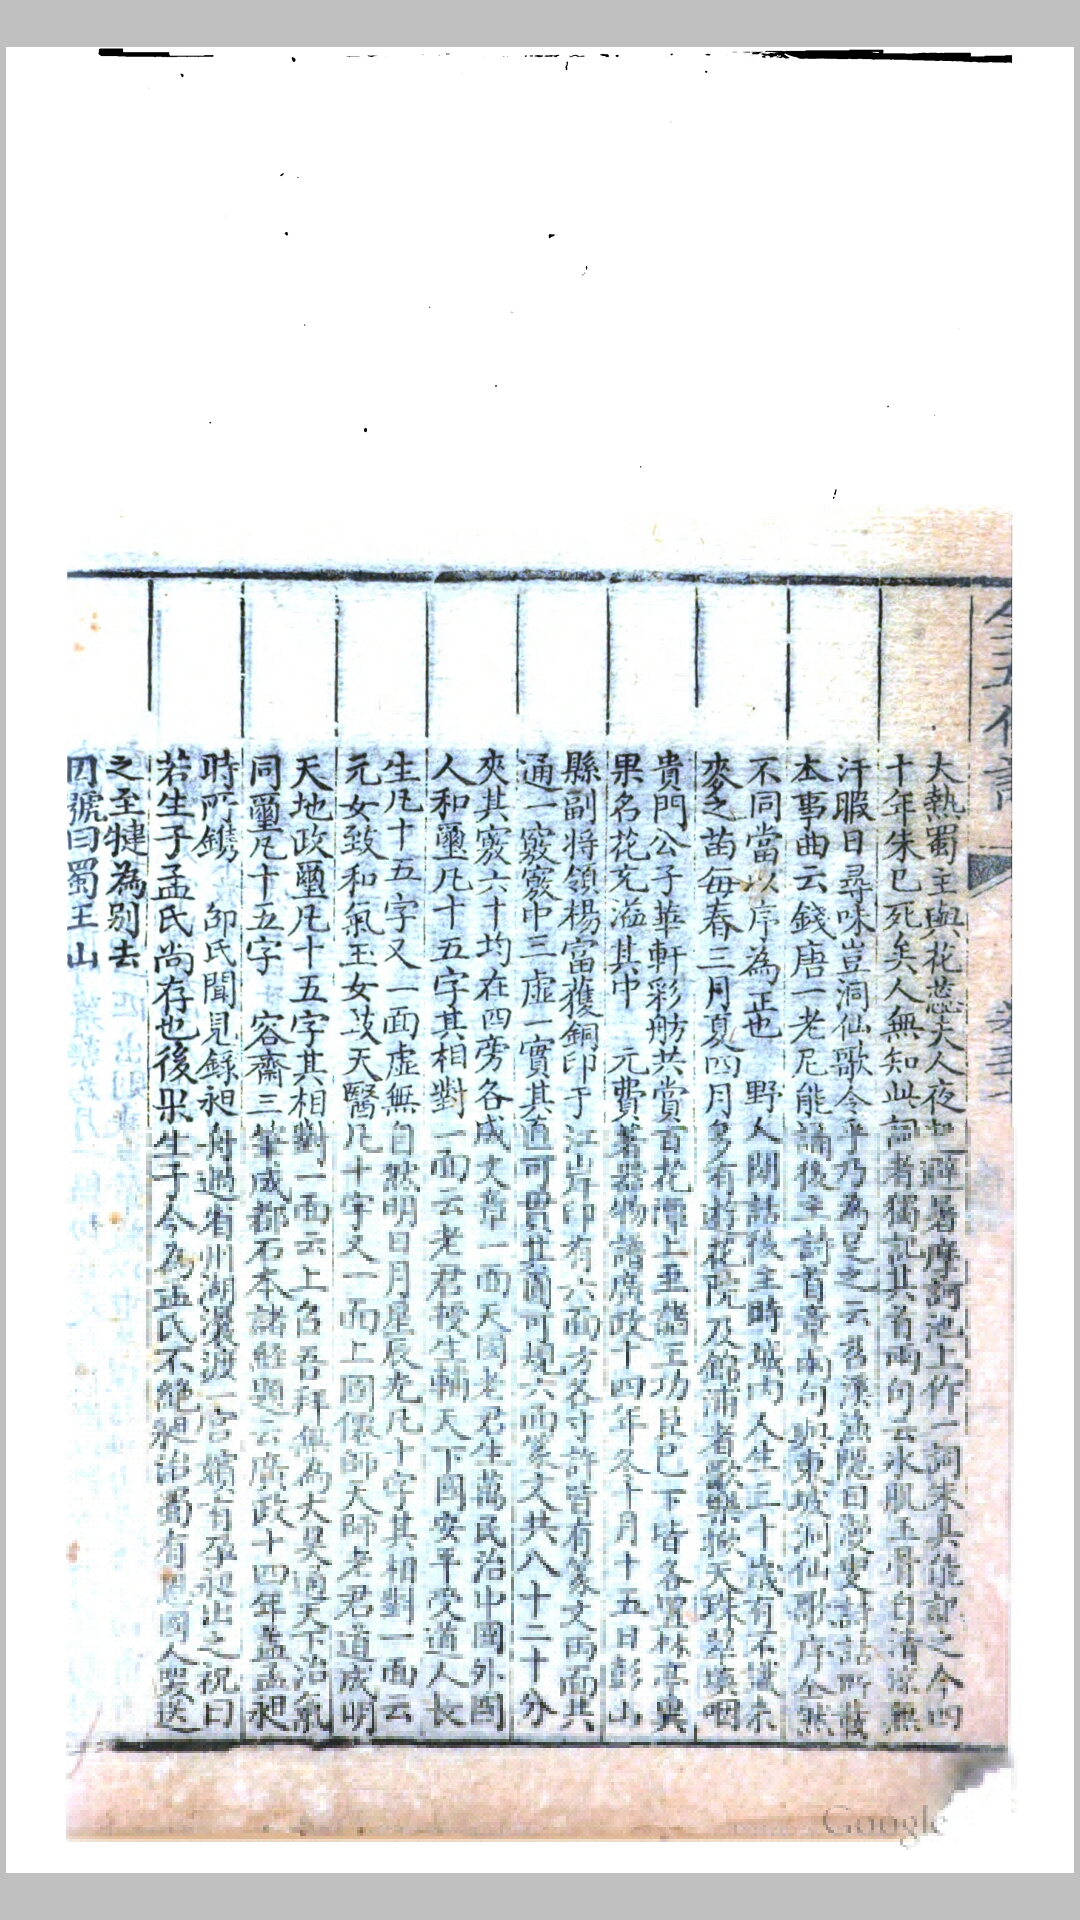 大熱蜀主與花蕊夫人夜起避暑摩訶池上作一詞朱具能記之今四
十年朱已死矣人無知此詞者獨記其首兩句云冰肌玉骨自清涼無
汗暇日尋味豈洞仙歌令乎乃為足之云苕溪漁隱曰漫叟詩話所載
本事曲云錢唐一老尼能誦後主詩首章兩句與東坡洞仙歌序全然
不同當以序為正也 野人閒話後主時城內人生三十歲有不識米
麥之苗每春三月夏四月多有遊花院及錦浦者歌樂掀天珠翠填咽
貴門公子華軒彩舫共賞百花潭上至諸王功臣已下皆各置林亭異
果名花充溢其中 元費著器物譜廣政十四年冬十月十五日彭山
縣副將領楊富獲銅印于江岸印有六面方各寸許皆有篆文兩面其
通一竅竅中三虛一實其直可貫其圓可填六面篆文共八十二十分
夾其竅六十均在四旁各成文章一面天國老君生萬民治中國外國
人和璽凡十五字其相對一面云老君授生輔天下國安平受道人長
生凡十五字又一面虛無自然明日月星辰光凡十字其相對一面云
元女致和氣玉女茭天醫凡十字又一面上國儇師天師老君道成明
天地政璽凡十五字其相對一面云上台吾拜無為大昊通天下治氣
同璽凡十五字 容齋三筆成都石本諸經題云廣政十四年蓋孟昶
時所鐫 邵氏聞見錄昶舟過省州湖瀼渡一宮嬪有孕昶出之祝曰
若生子孟氏尚存也後果生子今為孟氏不絕昶治蜀有恩國人哭送
之至犍為別去
因號曰蜀王山
Google